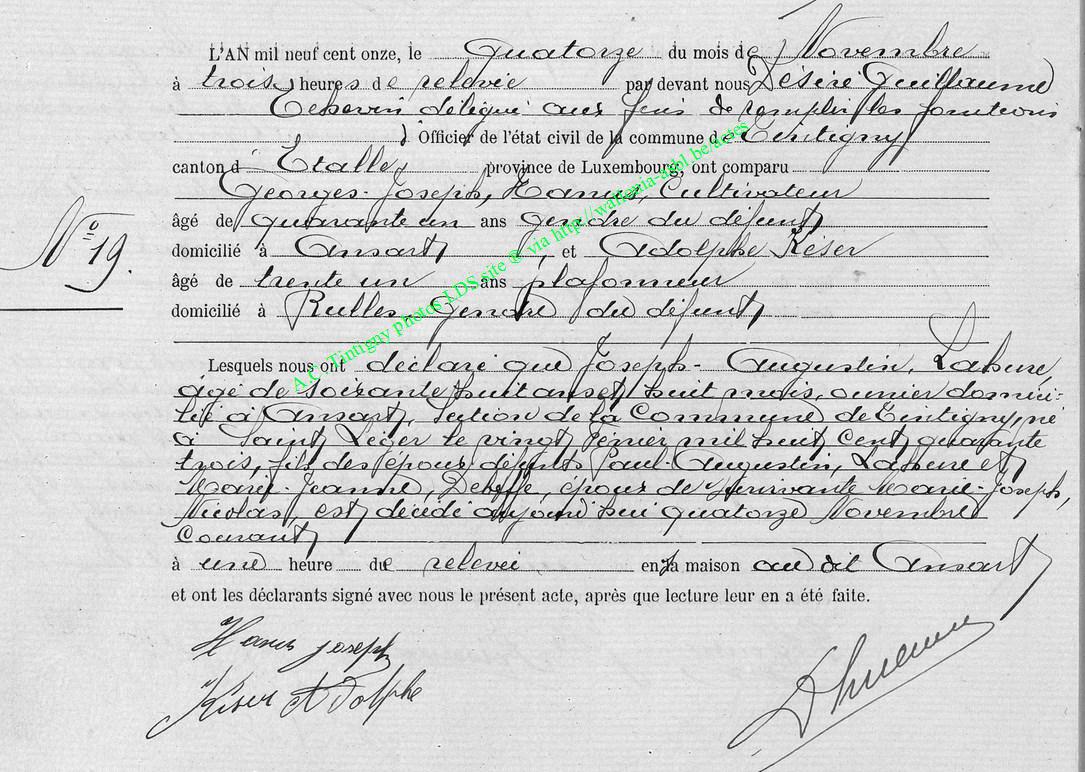 L'AN mil neuf cent onze, le quatorze du mois de Novembre
à trois heures de relevée par devant nous Désiré Guillaume
délégué aux fins de remplir les fonctions
Officier de l'état civil de la commune de Tintigny
canton d'Etalle, province de Luxembourg, ont comparu
Georges-Joseph, Hanus, Cultivateur
âgé de quarante un ans Gendre du défunt,
domicilié à Ansart, et Adolphe Késer
N° 19.
âgé de trente un ans plafonneur
domicilié à Rulles. Gendre du défunt,
Lesquels nous ont déclaré que Joseph-Augustin, Lahure,
agé de soixante huit ans et huit mois, ouvrier domici-
lié à Ansart, section de la Commune de Tintigny, né
à Saint Léger le vingt février mil huit cent quarante
trois, fils des époux défunts Paul-Augustin, Lahure et
Marie-Jeanne, époux de survivante Marie-Joseph,
Nicolas, est décédé aujourd'hui quatorze Novembre
courant,
à une heure de relevée en la maison au dit Ansart
et ont les déclarants signé avec nous le présent acte, après que lecture leur en a été faite.
Hanus joseph
Késer Adolphe
A.C. Tintigny photos LDS site @ via http://wallonia-asbl.be/actes